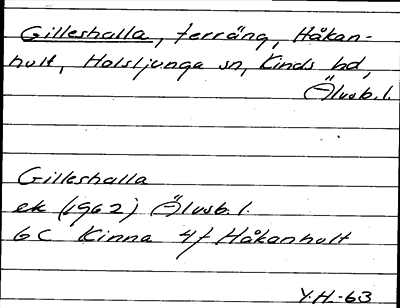 Gilleshalla, terräng, Håkan-
hult, Holsljunga sn, Kinds hd,
Älvsb. l.
Gilleshalla
ek (1962) Älvsb. l.
6C Kinna 4f Håkanhult
Y.H.-63